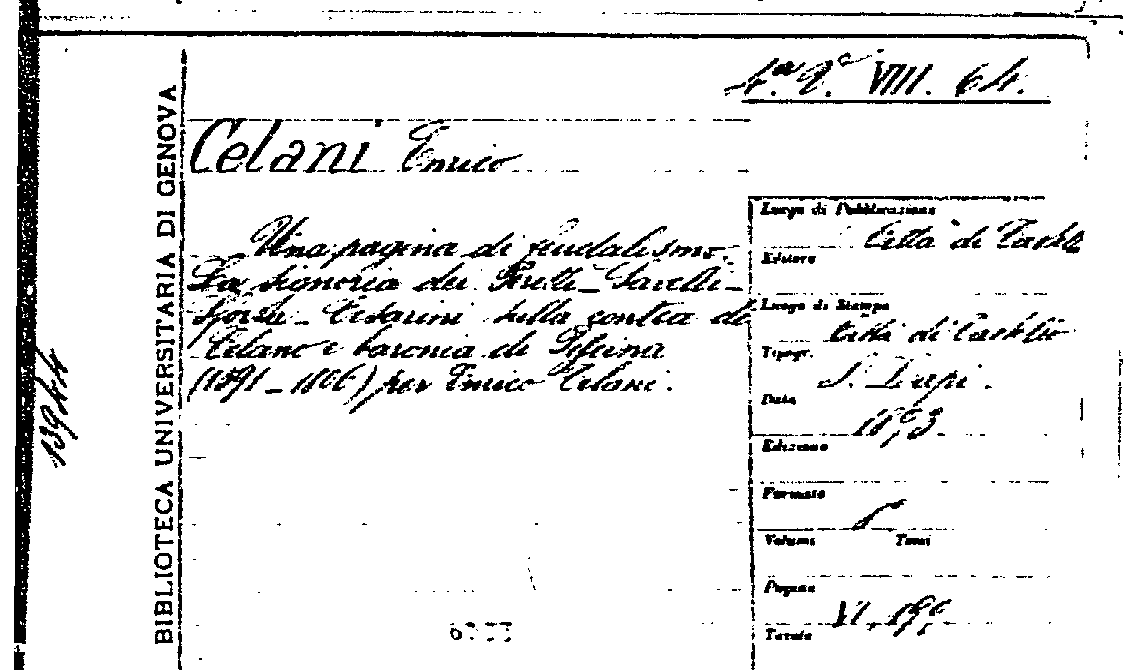 4.ª Q.ª VIII. 64.
Celani Enrico
Una pagina di feudalismo.
La signoria dei Peretti-Savelli-
Sforza-Cesarini sulla contea di
Celano e baronia di Pescina
(1591-1806) per Enrico Celani.
Luogo di Pubblicazione
Città di Castello
Editore
Luogo di Stampa
Città di Castello
Tipogr.
S. Lapi.
Data
1893.
Edizione
Formato
8
Volumi Tomi
Pagine
VI, 199
Tavole
BIBLIOTECA UNIVERSITARIA DI GENOVA
13944